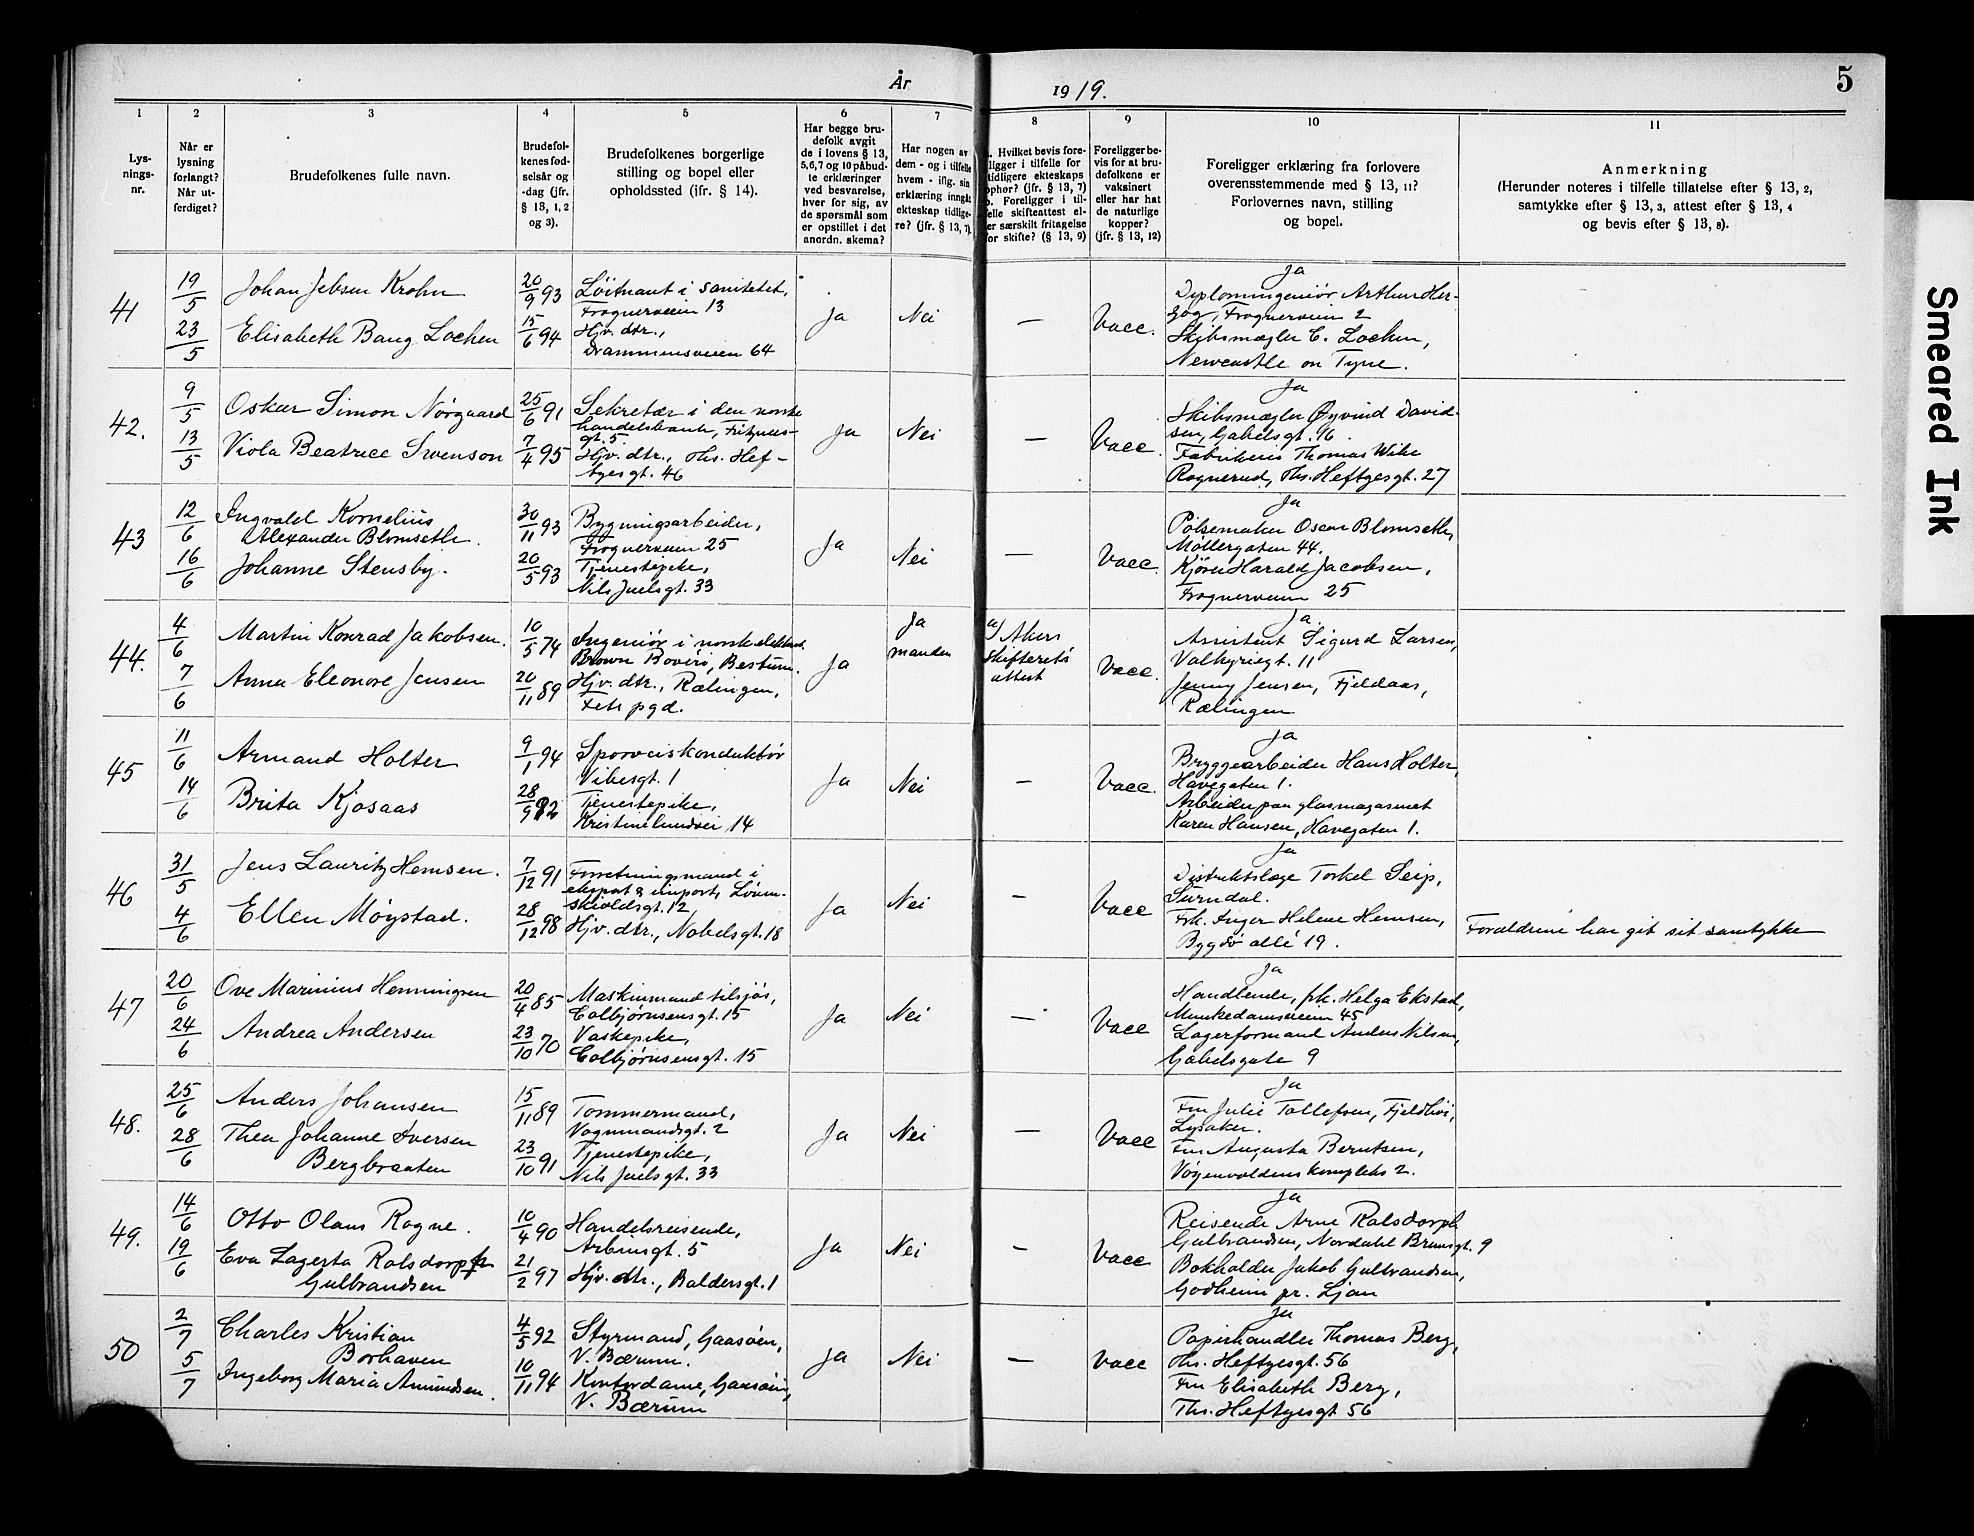 År 1919.
5
1
2
3
4
5
6
7
8
9
10
11
Lys-
nings-
nr.
Når er
lysning
forlangt?
Når ut-
ferdiget?
Brudefolkenes fulle navn.
Brudefol-
kenes fød-
selsår og
-dag (jfr.
§ 13, 1, 2
og 3).
Brudefolkenes borgerlige
stilling og bopel eller
opholdssted (ifr. § 14).
Har begge bru-
defolk avgit
de i lovens § 13,
5,6,7 og 10 påbud-
te erklæringer
ved besvarelse,
hver for sig, av
de spørsmål som
er opstillet i det
anordn. skema?
Har nogen av
dem - og i tilfelle
hvem - iflg. sin
erklæring inngåt
ekteskap tidlige-
re? (jfr. § 13, 7).
. Hvilket bevis fore-
ligger i tilfelle for
tidligere ekteskaps
ophør? (jfr. § 13, 7)
b. Foreligger i til-
felle skifteattest el-
er særskilt fritagelse
for skifte? (§ 13, 9)
Foreligger be-
vis for at bru-
defolkene er
vaksinert
eller har hat
de naturlige
kopper?
(jfr. § 13, 12)
Foreligger erklæring fra forlovere
overensstemmende med § 13, 11?
Forlovernes navn, stilling
og bopel.
Anmerkning
(Herunder noteres i tilfelle tillatelse efter § 13, 2,
samtykke efter § 13, 3, attest efter § 13, 4
og bevis efter § 13, 8).
41
19/5
23/5
Johan Jebsen Krohn
Elisabeth Bang Lochen
20/9 93
15/6 94
Löitnant i sanitetet,
Frognerveien 13
Hjv. dtr.,
Drammensveien 64
Ja
Nei
—
Vacc.
Ja
Diplomingeniör Arthur Her-
zog, Frognerveien 2
Skibsmægler C. Lochen,
Newcastle on Tyne.
42.
9/5
13/5
Oskar Simon Nørgaard
Viola Beatrice Swenson
25/6 91
7/4 95
Sekretær i den norske
handelsbank, Fritzners-
gt. 5.
Hjv. dtr., Ths. Hef-
tyesgt. 46
Ja
Nei
—
Vacc.
Ja
Skibsmægler Øyvind David-
sen, Gabelsgt. 16.
Fabrikeier Thomas Wike
Rognerud, Ths. Heftyesgt. 27
43
12/6
16/6
Ingvald Kornelius
Alexander Blomseth.
Johanne Stensby.
30/11 93
20/5 93
Bygningsarbeider,
Frognerveien 25
Tjenestepike,
Nils Juelsgt. 33
Ja
Nei
—
Vacc.
Ja
Pølsemaker Oscar Blomseth,
Møllergaten 44.
Kjører Harald Jacobsen,
Frognerveien 25
44.
4/6
7/6
Martin Konrad Jakobsen.
Anna Eleonore Jensen
10/5 74
20/11 89
Ingeniör i norsk elektrisk
Brown Boveri, Bestum.
Hjv. dtr., Rælingen,
Fets pgd.
Ja
Ja
manden
a) Akers
skifterets
attest
Vacc.
Ja.
Assistent Sigurd Larsen,
Valkyriegt. 11
Jenny Jensen, Fjeldaas,
Rælingen
45
11/6
14/6
Armand Holter
Brita Kjosaas
9/1 94
28/9 92
Sporveiskonduktör
Vibesgt. 1
Tjenestepike,
Kristinelundvei 14
Ja
Nei
—
Vacc.
Ja
Bryggearbeider Hans Holter,
Havegaten 1.
Arbeider paa glasmagasinet
Karen Hansen, Havegaten 1.
46
31/5
4/6
Jens Lauritz Hemsen.
Ellen Möystad.
7/12 91
28/12 98
Forretningsmand i
eksport & import, Löven-
skioldsgt. 12
Hjv. dtr., Nobelsgt. 18
Ja
Nei
—
Vacc
Ja
Distriktslæge Torkel Seip,
Surndal.
Frk. Inger Helene Hemsen,
Bygdö allé 19.
Forældrene har git sit samtykke
47
20/6
24/6
Ove Marinius Henningsen
Andrea Andersen
20/4 85
23/10 70
Maskinmand tilsjøs,
Colbjørnsensgt. 15
Vaskepike,
Colbjørnsensgt. 15
Ja
Nei
—
Vacc
Ja
Handlende, frk. Helga Ekstad,
Munkedamsveien 45
Lagerformand Anders Nilsen,
Gabelsgate 9
48.
25/6
28/6
Anders Johansen
Thea Johanne Iversen
Bergbraaten
15/11 89
23/10 91
Tømmermand,
Vognmandsgt. 2
Tjenestepike,
Nils Juelsgt. 33
Ja
Nei
—
Vacc
Ja
Fru Julie Tollefsen, Fjeldhöi,
Lysaker.
Fru Augusta Berntsen,
Vøyenvoldens kompleks 2.
49.
14/6
19/6
Otto Olaus Rogne.
Eva Lagerta Rolsdorph
Gulbrandsen
10/4 90
21/2 97
Handelsreisende,
Arbinsgt. 5
Hjv. dtr., Baldersgt. 1
Ja
Nei
—
Vacc
Ja
Reisende Arne Rolsdorph
Gulbrandsen, Nordahl Brunsgt. 9
Bokholder Jakob Gulbrandsen,
Godheim pr. Ljan
50
2/7
5/7
Charles Kristian
Borhaven
Ingeborg Maria Amundsen.
4/5 92
10/11 94
Styrmand, Gaasöen,
V. Bærum.
Kontordame, Gaasöen,
V. Bærum
Ja
Nei
—
Vacc
Ja
Papirhandler Thomas Berg,
Ths. Heftyesgt. 56
Fru Elisabeth Berg,
Ths. Heftyesgt 56
Smeared Ink